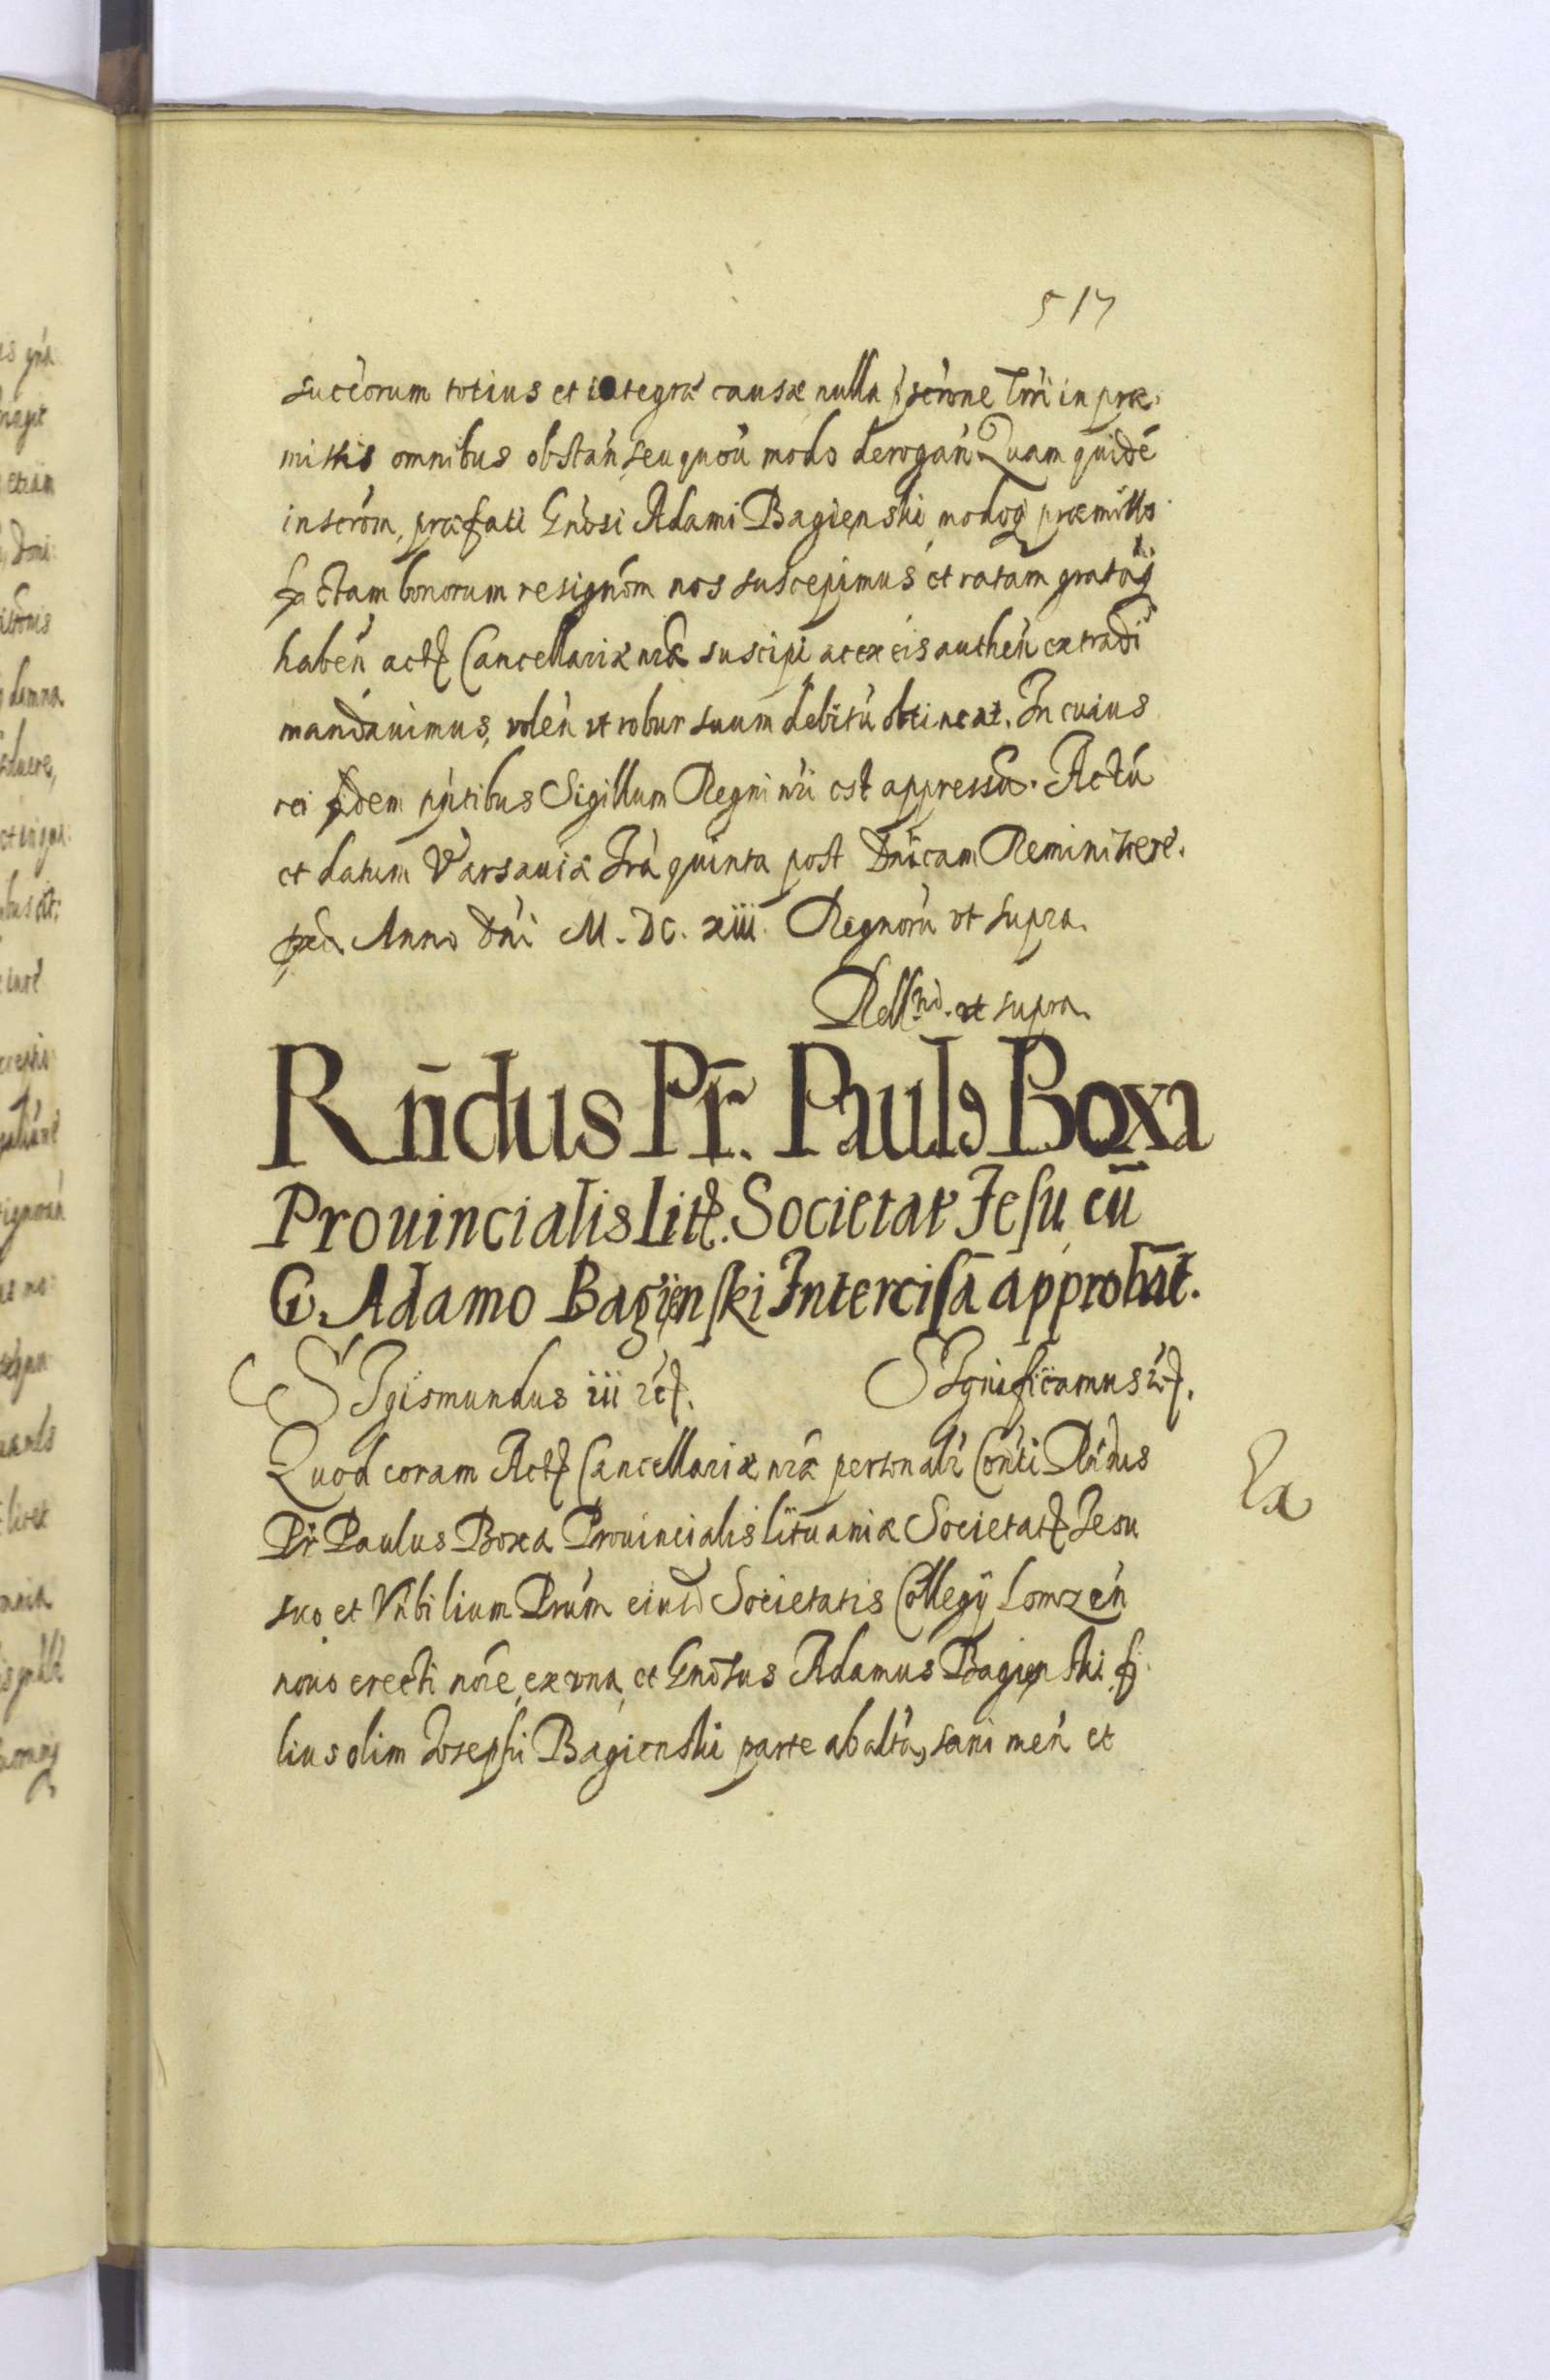 517
succorum totius et integra causæ nulla pscrone Trri in præ-
missis omnibus obstan seu quoui modo derogan Quam quidē
inscrōm, præfati Gnosi Adami Bagienski modoq præmisso
factam bonorum resignōm nos suscepimus et ratam gratāq
habeñ actis Cancellariæ nrǣ suscipi ac ex eis autheñ extradi
mandauimus, voleñ vt robur suum debitū obtineat. In cuius
rei fidem pñtibus Sigillum Regni nri est appressū. Actū
et datum Varsauiæ fria quinta post Dñicam Reminiscere.
Anno Dñi M. DC. xiii Regnorū vt supra.
Rellnō. vt supra.
Rñdus Pr̄. Paulꝰ Boxa
Prouincialis Litt. Societat Iesu cū
G. Adamo Bagienski Intercisā approbāt.
SIgismundus iii etc. SIgnificamus etc.
Quod coram Actis Cancellariæ nrǣ personalr Conti Rñdus
Pr̄ Paulus Boxa Prouincialis Lituaniæ Societatis Iesu
suo et Vñbilium Prum eiusd Societatis Collegij Lomzeñ
nouo erecti noīe, ex vna, et Gnosus Adamus Bagienski fi-
lius olim Iosephi Bagienski parte ab altā, sani meñ et
Ex